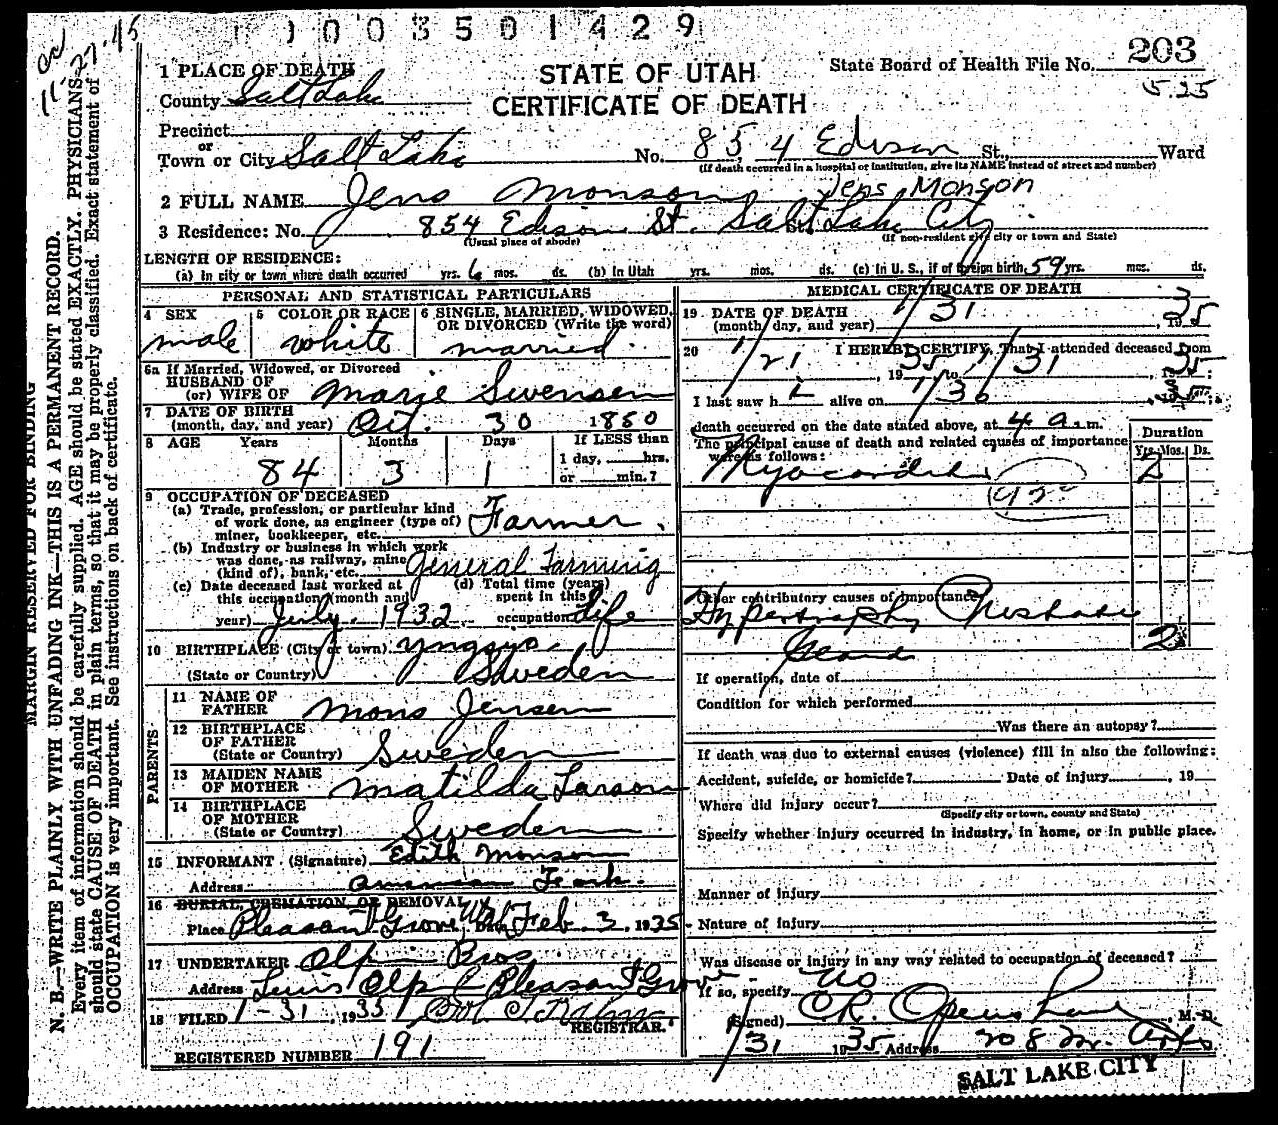 1003501429
11-27-45
203
5.25
STATE OF UTAH
CERTIFICATE OF DEATH
State Board of Health File No.
1 PLACE OF DEATH
County Salt Lake
Precinct
or
Town or City Salt Lake No. 854 Edison St., Ward
(If death occurred in a hospital or institution, give its NAME instead of street and number)
2 FULL NAME Jens Monson Jens Monson
3 Residence: No. 854 Edison St. Salt Lake City
(Usual place of abode) (If non-resident give city or town and State)
LENGTH OF RESIDENCE:
(a) In city or town where death occurred yrs. 6 mos. ds. (b) In Utah yrs. mos. ds. (c) In U. S., if of foreign birth 59 yrs. mos. ds.
PERSONAL AND STATISTICAL PARTICULARS
4 SEX male
5 COLOR OR RACE white
6 SINGLE, MARRIED, WIDOWED, OR DIVORCED (Write the word) married
6a If Married, Widowed, or Divorced
HUSBAND OF
(or) WIFE OF Marie Swensen
7 DATE OF BIRTH
(month, day, and year) Oct. 30 1850
8 AGE Years Months Days If LESS than
84 3 1 1 day, hrs.
or min.?
9 OCCUPATION OF DECEASED
(a) Trade, profession, or particular kind
of work done, as engineer (type of) Farmer
miner, bookkeeper, etc.
(b) Industry or business in which work
was done, as railway, mine
(kind of), bank, etc. General Farming
(c) Date deceased last worked at
this occupation (month and
year) July. 1932
(d) Total time (years)
spent in this
occupation Life
10 BIRTHPLACE (City or town)
(State or Country) Sweden
PARENTS
11 NAME OF
FATHER Mons Jensen
12 BIRTHPLACE
OF FATHER
(State or Country) Sweden
13 MAIDEN NAME
OF MOTHER Matilda Larson
14 BIRTHPLACE
OF MOTHER
(State or Country) Sweden
15 INFORMANT (Signature) Edith Monson
Address American Fork.
16 BURIAL, CREMATION, OR REMOVAL
Place Pleasant Grove Utah Date Feb. 3. 1935
17 UNDERTAKER Olpin Bros
Address Pleasant Grove
18 FILED 1-31, 1935
REGISTRAR.
REGISTERED NUMBER 191
MEDICAL CERTIFICATE OF DEATH
19 DATE OF DEATH
(month, day, and year) 1/31, 1935
20 I HEREBY CERTIFY, That I attended deceased from
1/21, 1935 to 1/31, 1935;
I last saw h i alive on 1/30, 1935;
death occurred on the date stated above, at 4 a.m.
The principal cause of death and related causes of importance
were as follows:
Duration
Yrs. Mos. Ds.
Myocarditis 2
Other contributory causes of importance
Hypertrophy Prostate
Gland 2
If operation, date of
Condition for which performed
Was there an autopsy?
If death was due to external causes (violence) fill in also the following:
Accident, suicide, or homicide? Date of injury, 19
Where did injury occur?
(Specify city or town, county and State)
Specify whether injury occurred in industry, in home, or in public place.
Manner of injury
Nature of injury
Was disease or injury in any way related to occupation of deceased?
If so, specify No
(Signed) C.R. Openshaw, M. D.
1/31 1935 Address 708 Med. Arts
SALT LAKE CITY
MARGIN RESERVED FOR BINDING
N. B.—WRITE PLAINLY WITH UNFADING INK—THIS IS A PERMANENT RECORD.
Every item of information should be carefully supplied. AGE should be stated EXACTLY. PHYSICIANS
should state CAUSE OF DEATH in plain terms, so that it may be properly classified. Exact statement of
OCCUPATION is very important. See instructions on back of certificate.